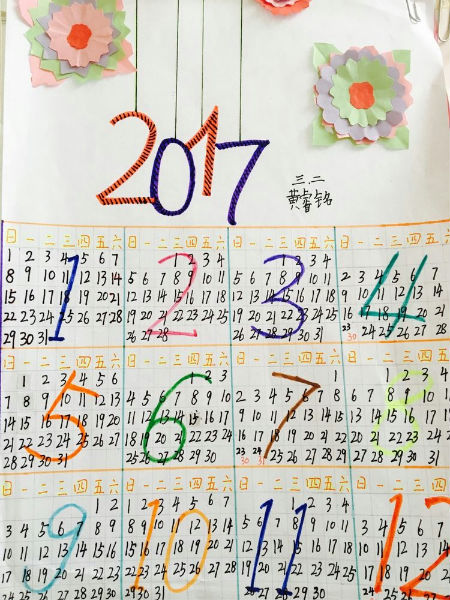 2017
三.二
黄睿铭
日 一 二 三 四 五 六
1 2 3 4 5 6 7
8 9 10 11 12 13 14
15 16 17 18 19 20 21
22 23 24 25 26 27 28
29 30 31
1
日 一 二 三 四 五 六
1 2 3 4
5 6 7 8 9 10 11
12 13 14 15 16 17 18
19 20 21 22 23 24 25
26 27 28
2
日 一 二 三 四 五 六
2 3 4
5 6 7 8 9 10 11
12 13 14 15 16 17 18
19 20 21 22 23 24 25
26 27 28 29 30 31
3
日 一 二 三 四 五
2 3 4 5 6 7
9 10 11 12 13 14
16 17 18 19 20 21
23 24 25 26 27 28
30
4
日 一 二 三 四 五 六
1 2 3 4 5 6
7 8 9 10 11 12 13
14 15 16 17 18 19 20
21 22 23 24 25 26 27
28 29 30 31
5
日 一 二 三 四 五 六
1 2 3
4 5 6 7 8 9 10
11 12 13 14 15 16 17
18 19 20 21 22 23 24
25 26 27 28 29 30
6
日 一 二 三 四 五 六
1
2 3 4 5 6 7 8
9 10 11 12 13 14 15
16 17 18 19 20 21 22
23 24 25 26 27 28 29
30 31
7
日 一 二 三 四 五
1 2 3 4
6 7 8 9 10 11
13 14 15 16 17
20 21 22 23
27 28 29 30 31
8
日 一 二 三 四 五 六
1 2
3 4 5 6 7 8 9
10 11 12 13 14 15 16
17 18 19 20 21 22 23
24 25 26 27 28 29 30
9
日 一 二 三 四 五 六
1 2 3 4 5 6 7
8 9 10 11 12 13 14
15 16 17 18 19 20 21
22 23 24 25 26 27 28
29 30 31
10
日 一 二 三 四 五 六
1 2 3 4
5 6 7 8 9 10 11
12 13 14 15 16 17 18
19 20 21 22 23 24 25
26 27 28 29 30
11
日 一 二 三 四 五
1
3 4 5 6 7 8
10 11 12 13 14
17 18 19 20 21
12